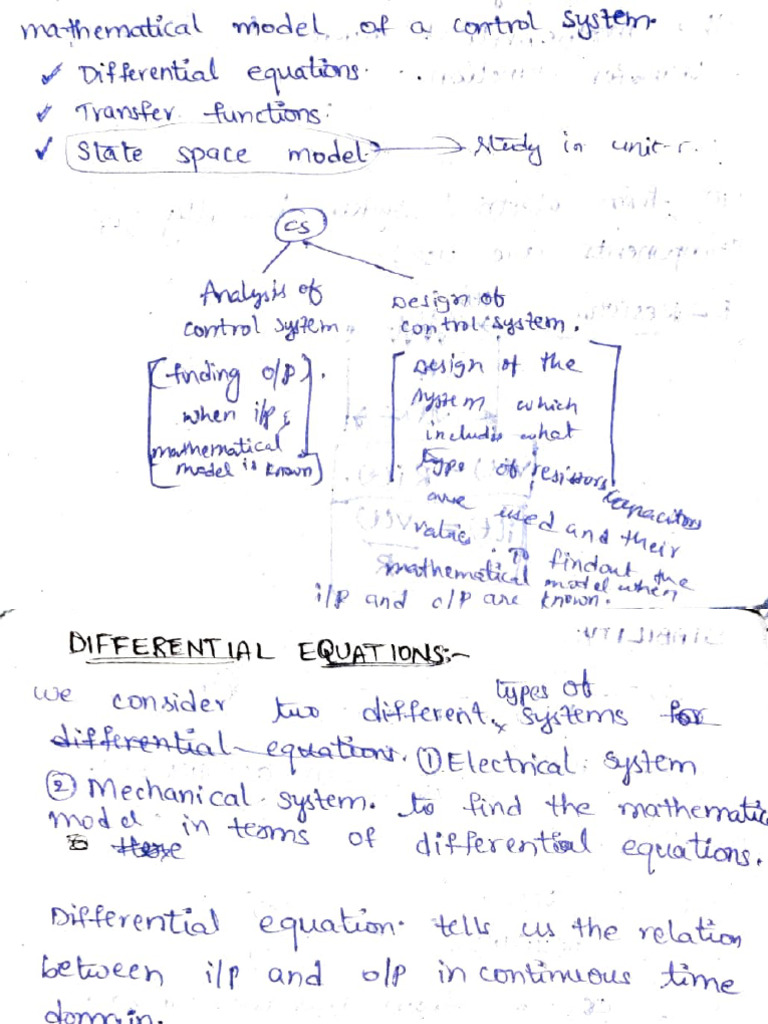 mathematical model of a control system.
✓ Differential equations.
✓ Transfer functions:
✓ State space model. → study in unit-
CS
Analysis of
control system
[(finding o/p).
when i/p &
mathematical
model is known]
Design of
control system.
[Design of the
system which
includes what
type of resistors capacitors
are used and their
values. To findout the
mathematical model when
i/p and o/p are known.
DIFFERENTIAL EQUATIONS:-
we consider two different types of systems for
differential equations. ① Electrical system
② Mechanical system. to find the mathematic
model in terms of differential equations.
Differential equation. tells us the relation
between i/p and o/p in continuous time
domain.